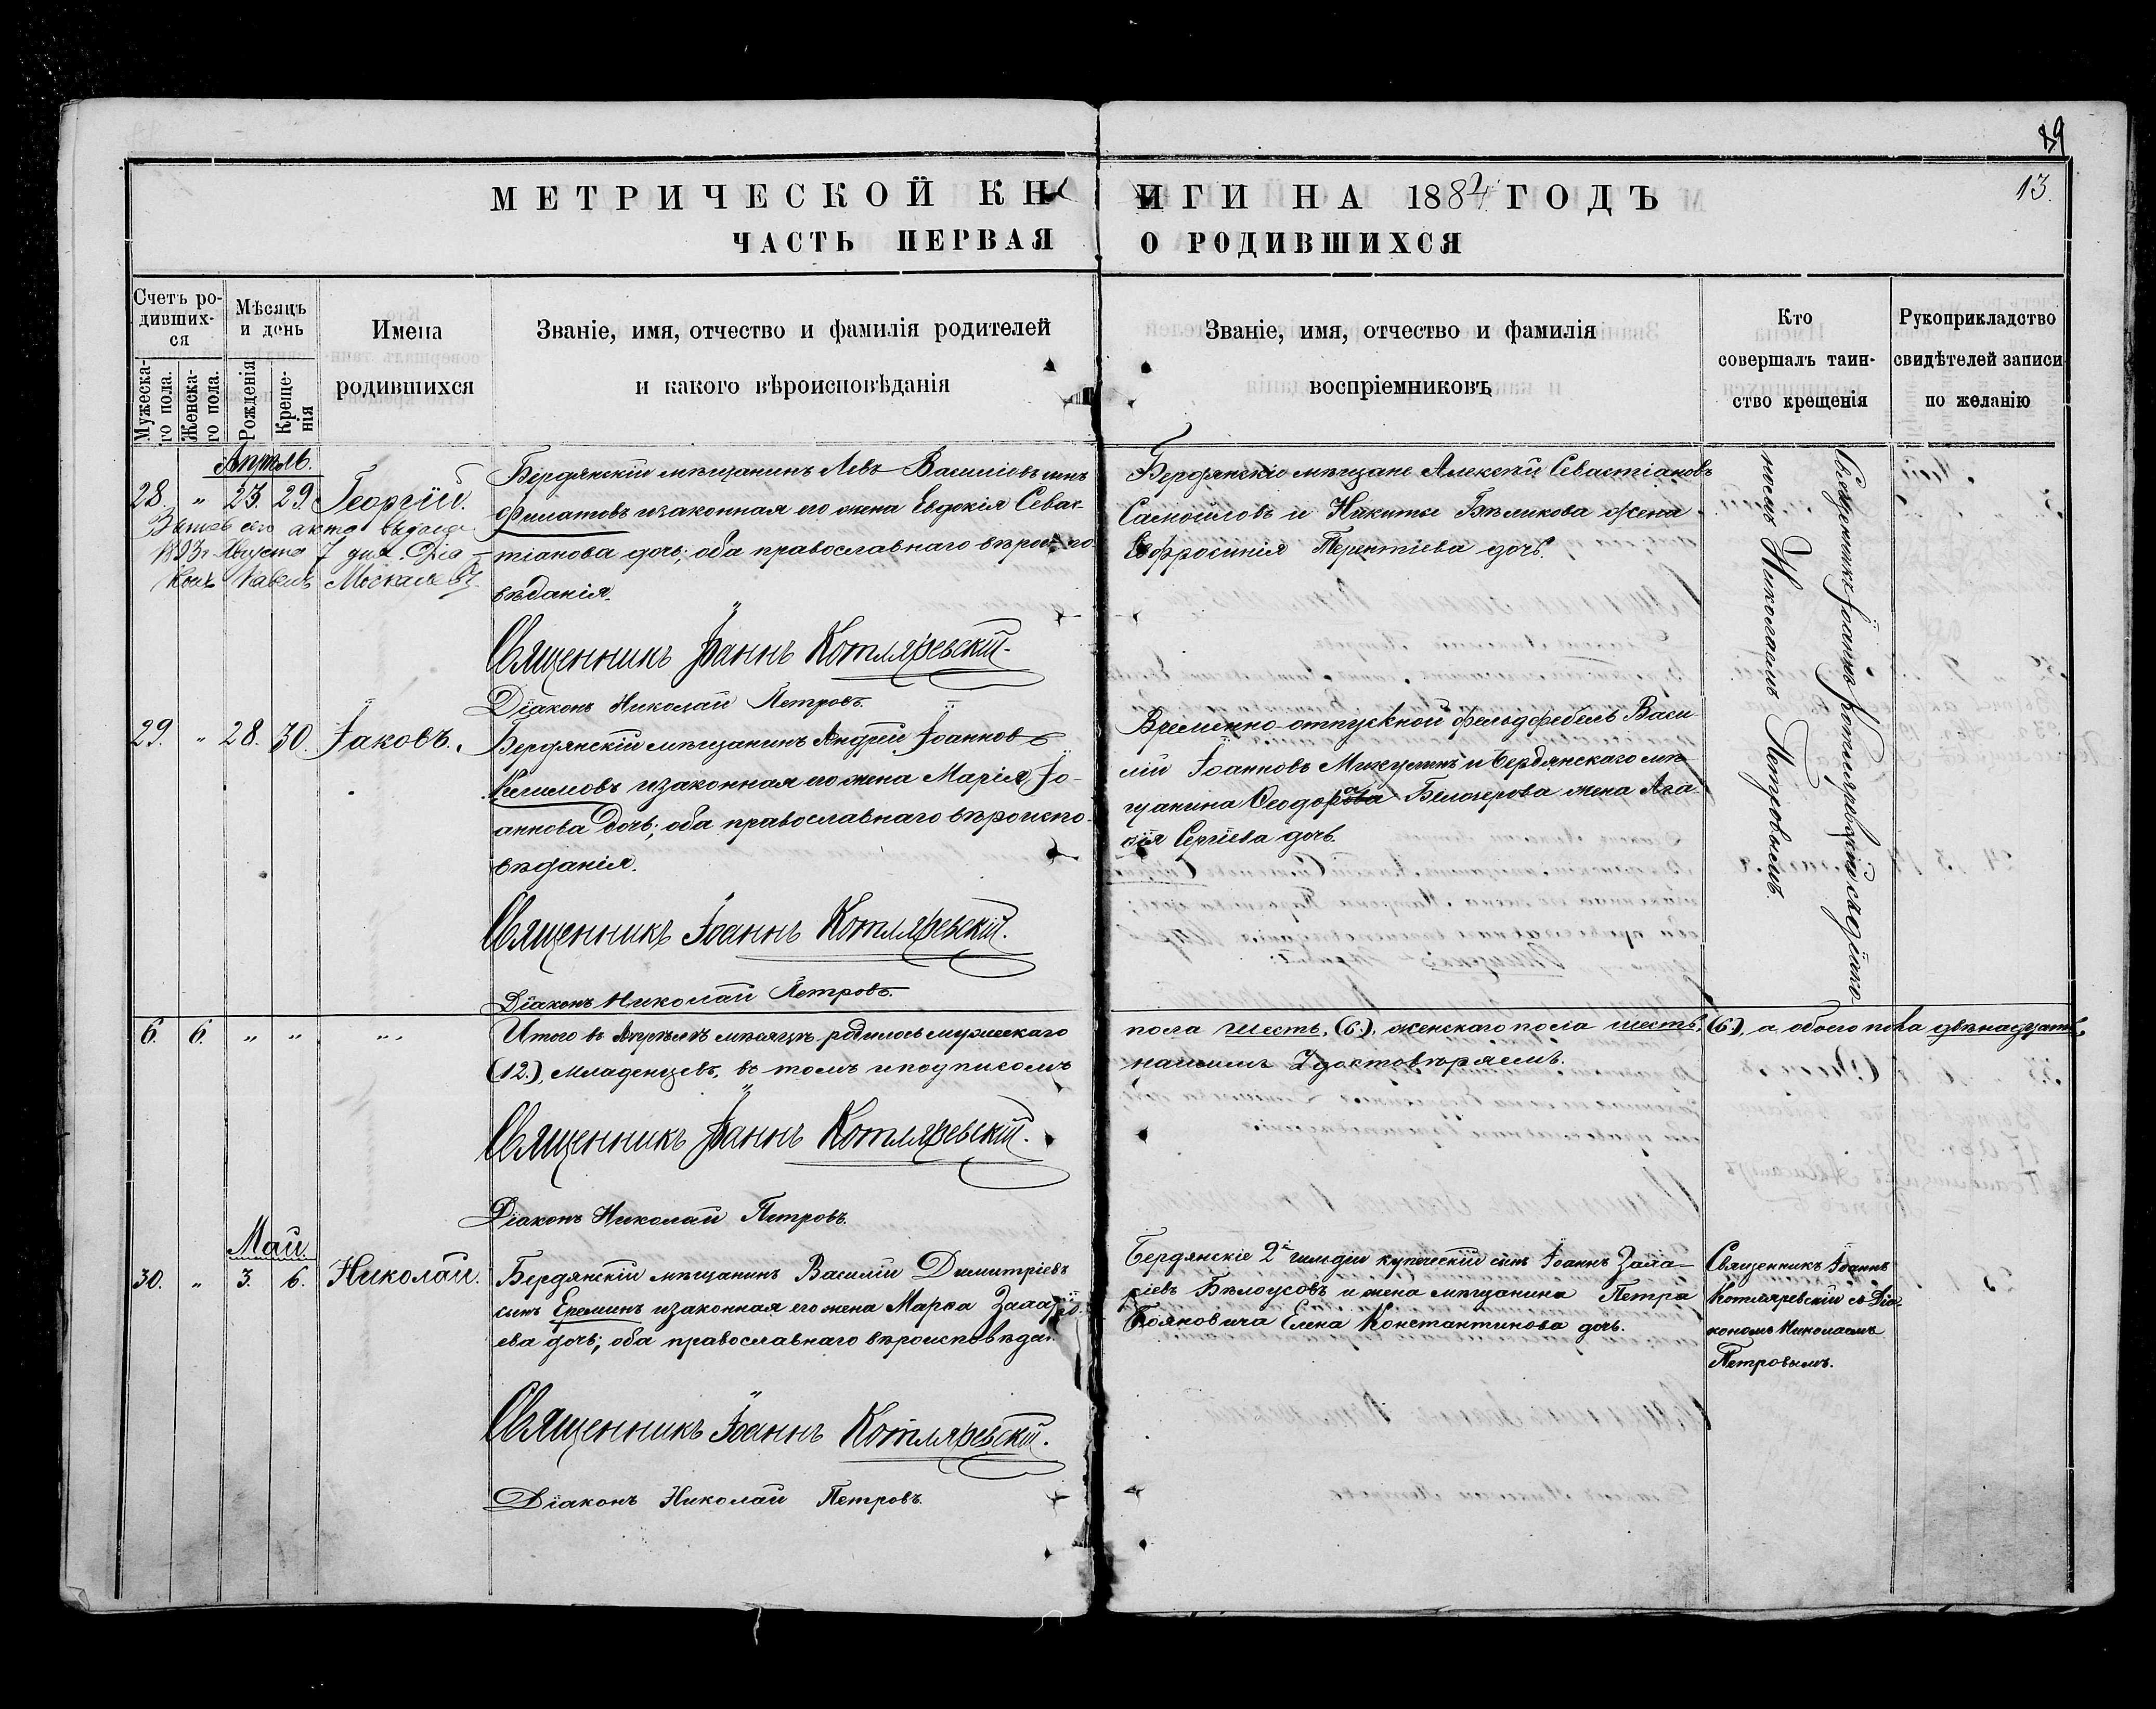 89
МЕТРИЧЕСКОЙ КНИГИ НА 1884 ГОДЪ
13.
ЧАСТЬ ПЕРВАЯ О РОДИВШИХСЯ
Счетъ родившихся
Мужескаго пола.
Женскаго пола.
Мѣсяцъ и день
Рожденія
Крещенія
Имена
родившихся
Званіе, имя, отчество и фамилія родителей
и какого вѣроисповѣданія
Званіе, имя, отчество и фамилія
воспріемниковъ
Кто
совершалъ таинство крещенія
Рукоприкладство
свидѣтелей записи
по желанію
Апрѣль.
28. " 23. 29. Георгій.
Выпись сего акта выдана
1893 г. Августа 7 дня. Діа-
конъ Павелъ Москалевъ
Бердянскій мѣщанинъ Левъ Василіевъ сынъ
Филатовъ и законная его жена Евдокія Севас-
тіанова дочь; оба православнаго вѣроиспо-
вѣданія.
Священникъ Іоаннъ Котляревскій.
Діаконъ Николай Петровъ.
Бердянскіе мѣщане Алексѣй Севастіановъ
Самойловъ и Никиты Бѣликова жена
Евфросинія Терентіева дочь.
Священникъ Іоаннъ Котляревскій съ Діако-
номъ Николаемъ Петровымъ.
29. " 28. 30. Іаковъ.
Бердянскій мѣщанинъ Андрей Іоанновъ
и законная его жена Марія Іо-
аннова дочь; оба православнаго вѣроиспо-
вѣданія.
Священникъ Іоаннъ Котляревскій.
Діаконъ Николай Петровъ.
Временно-отпускной фельдфебель Васи-
лій Іоанновъ Микулинъ и Бердянскаго мѣ-
щанина Ѳеодора Белозерова жена Ага-
ѳія Сергіева дочь.
6. 6. " " "
Итого въ Апрѣлѣ мѣсяцѣ родилось мужескаго пола шесть, (6), женскаго пола шесть, (6), а обоего пола двѣнадцать,
(12), младенцевъ, въ томъ и подписомъ нашимъ удостовѣряемъ.
Священникъ Іоаннъ Котляревскій.
Діаконъ Николай Петровъ.
Май.
30. " 3. 6. Николай.
Бердянскій мѣщанинъ Василій Димитріевъ
сынъ Ереминъ и законная его жена Марѳа
ева дочь; оба православнаго вѣроисповѣдан.
Священникъ Іоаннъ Котляревскій.
Діаконъ Николай Петровъ.
Бердянскіе 2й гильдіи купеческій сынъ Іоаннъ Заха-
ріевъ Бѣлоусовъ и жена мѣщанина Петра
Бояновича Елена Константинова дочь.
Священникъ Іоаннъ
Котляревскій съ Діа-
кономъ Николаемъ
Петровымъ.